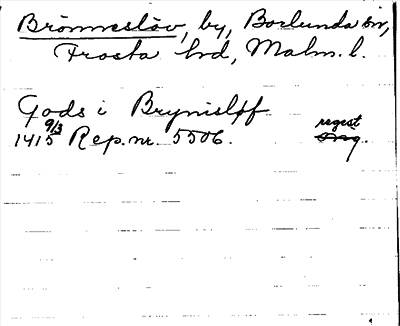 Brönneslöv, by, Borlunda sn,
Frosta hd, Malm. l.
Gods i Brynisløf
1415 9/3 Rep. nr. 5506. regest
Orig.